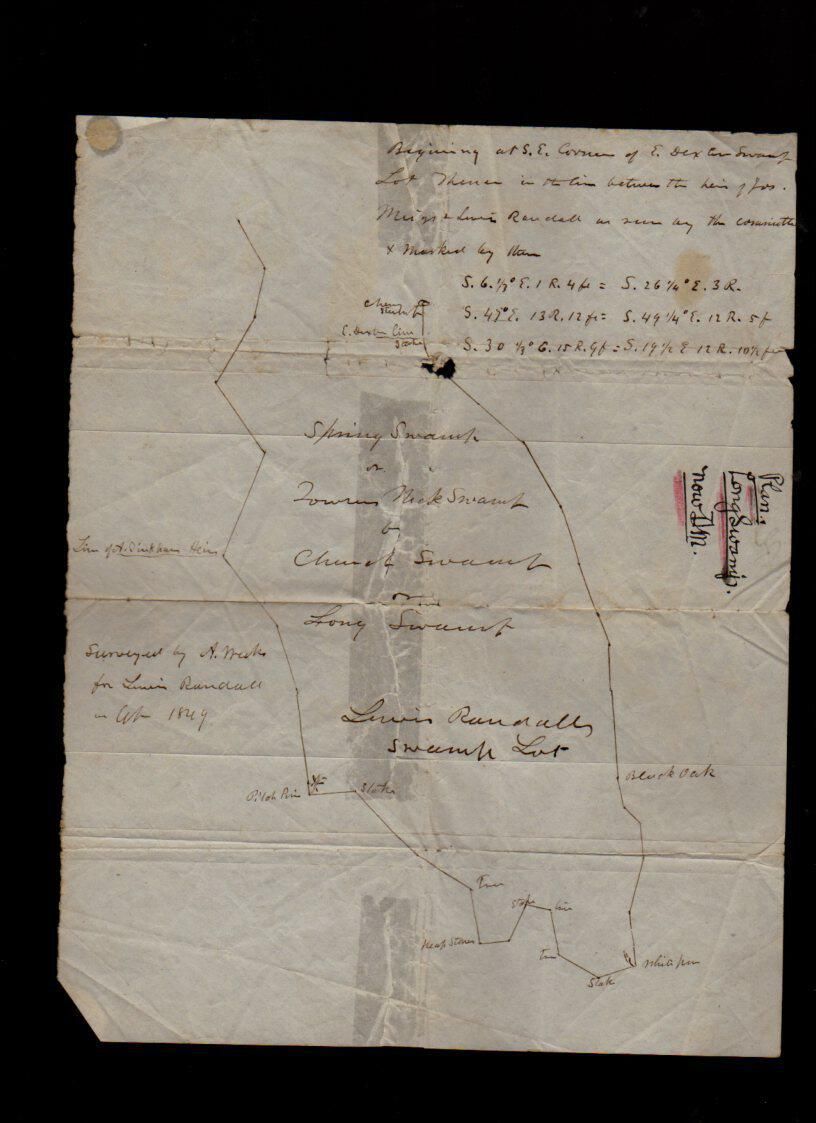 Begining at S.E. Corner of E. Dexter Swamp
Lot Thence in the line between the heirs of Jos.
Meigs & Lewis Randall as run by the committe
& Marked by them
S. 6 1/2° E. 1 R. 4 ft = S. 26 1/4° E. 3 R.
S. 49° E. 13 R. 12 ft = S. 49 1/4° E. 12 R. 5 f
S. 30 1/2° E. 15 R. 9 f = S. 19 1/2 E 12 R. 10 1/2 ft
E. Dexter line
Stake
Spring Swamp
or
Towers Neck Swamp
Church Swamp
or
Long Swamp
Plan.
Long Swamp.
now
Line of A. Heirs
Surveyed by A. Weeks
for Lewis Randall
in 1849
Lewis Randalls
Swamp Lot
Black Oak
Pitch Pine
Stake
Tree
Stake
Heap Stones
Stake
White pine